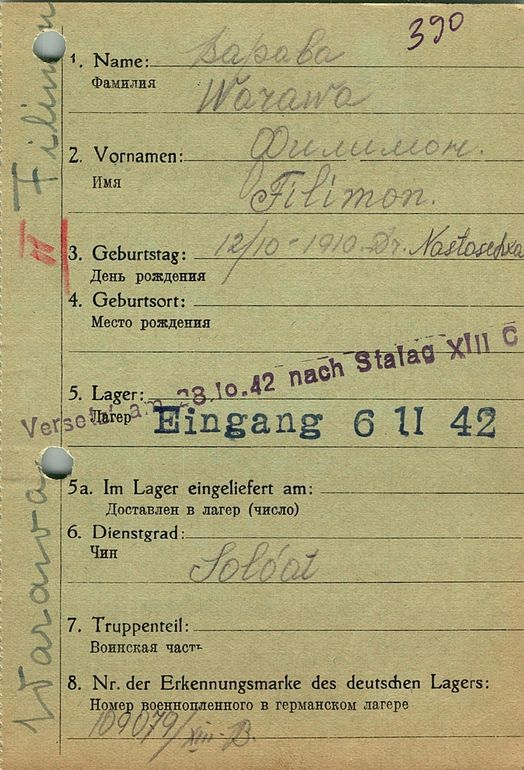 390
1. Name: Варава
Фамилия
Warawa
2. Vornamen: Филимон.
Имя
Filimon.
3. Geburtstag: 12/10-1910. Dr.
День рождения
4. Geburtsort:
Место рождения
Versetzt am 28.10.42 nach Stalag XIII C
5. Lager:
Лагер
Eingang 6 11 42
5a. Im Lager eingeliefert am:
Доставлен в лагер (число)
6. Dienstgrad:
Чин
Soldat
7. Truppenteil:
Воинская часть
8. Nr. der Erkennungsmarke des deutschen Lagers:
Номер военнопленного в германском лагере
109079/XIII-B.
Warawa Filimon